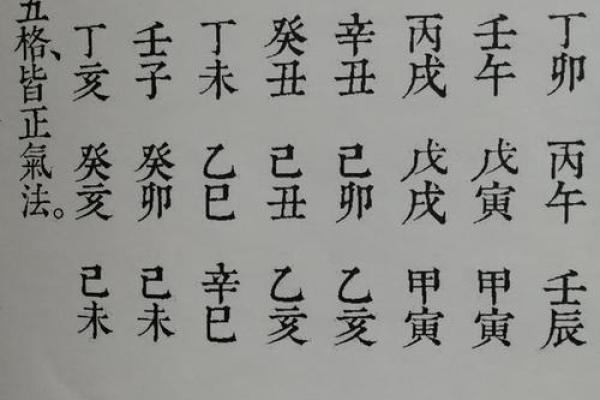 丁卯 丙午 壬辰
壬午 戊寅 甲寅
丙戌 戊戌 甲寅
辛丑 己卯 乙亥
癸丑 己丑 乙亥
丁未 乙巳 辛巳
壬子 癸卯 己未
丁亥 癸亥 己未
五格、皆正氣法。